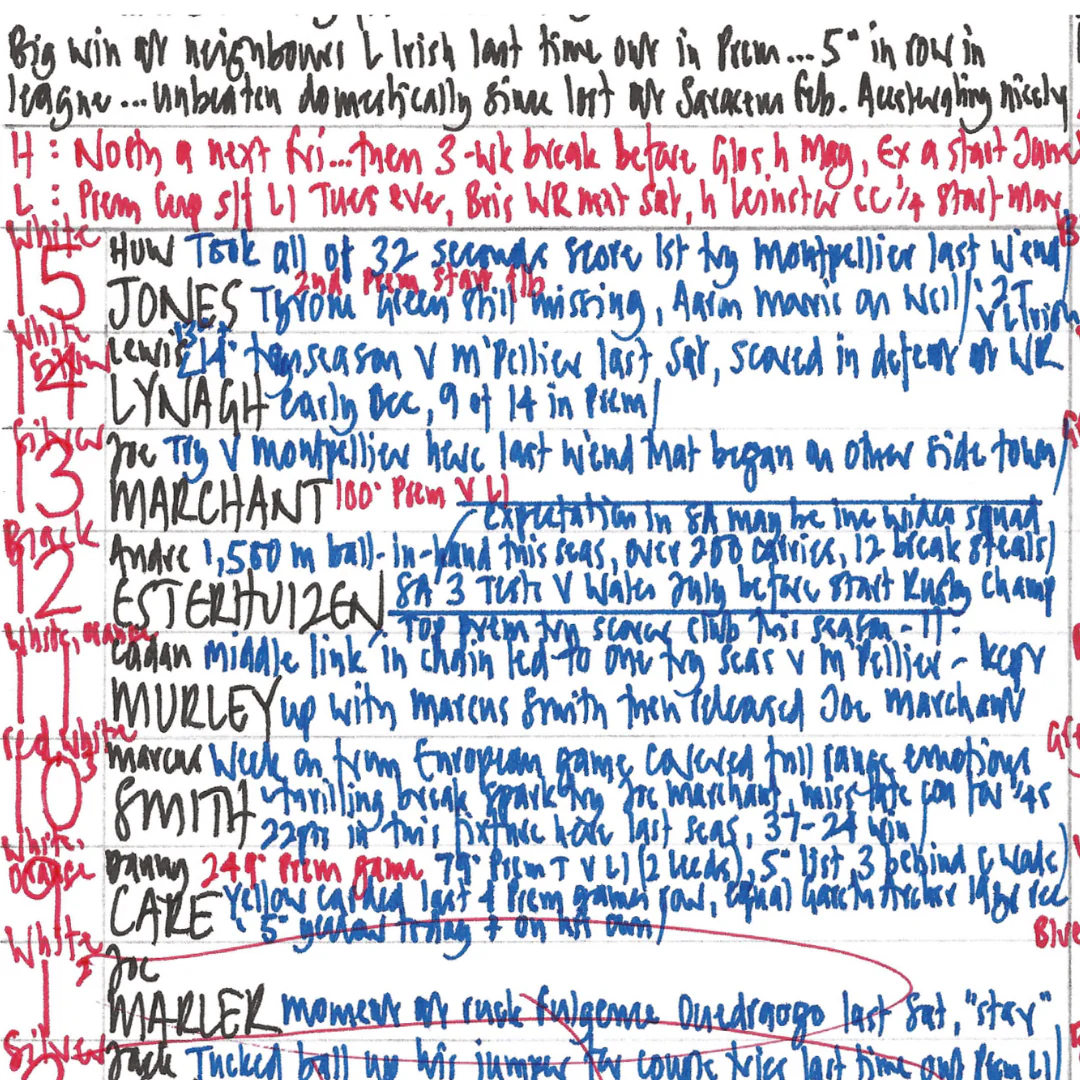 Big win at neighbours L Irish last time out in Prem... 5º in row in
league... unbeaten domestically since lost at Saracens Feb. Accelerating nicely
H : North a next Fri... then 3-wk break before Glos h May, Ex a start June
L : Prem Cup s/f LI Tues eve, Bris WR next Sat, h Leinster CC 1/4 start May
White
15 HUW Took all of 32 seconds score 1st try Montpellier last w'end
2nd Prem start
JONES Tyrone Green still missing, Aaron Morris on Weil / 2T v L Irish
White
14 Lewis try season v M'Pellier last Sat, scored in defeat at WR
LYNAGH early Dec, 9 of 14 in Prem/
Silver
13 Joe Try v Montpellier here last w'end that began on other side town/
MARCHANT 100º Prem v LI
Expectation in SA may be inc wider squad
Black
12 Andre 1,580 m ball-in-hand this seas, over 200 carries, 12 break steals)
ESTERHUIZEN SA 3 Tests v Wales July before start Rugby Champ
Top Prem try scorer club this season - 11.
White, orange
11 Cadan middle link in chain led to one try seas v M'Pellier - kept
MURLEY up with Marcus Smith then released Joe Marchant
red, white
10 Marcus Week on from European game, covered full range emotions
SMITH thrilling break spark try Joe Marchant, miss late con for 1/4s
22pts in this fixture here last seas, 37-24 win
White,
Orange
9 Danny 249º Prem game 79º Prem T v LI (2 Leeds), 5º list, 3 behind C Wade)
CARE Yellow carded last 4 Prem games row, equal Gareth Archer lge rec
5º yellow today + on his own/
White
1 Joe
MARLER moment at ruck Fulgence Ouedraogo last Sat, "stay"
Silver
Jack Tucked ball up his jumper for couple tries last time out Prem LI/
Blue